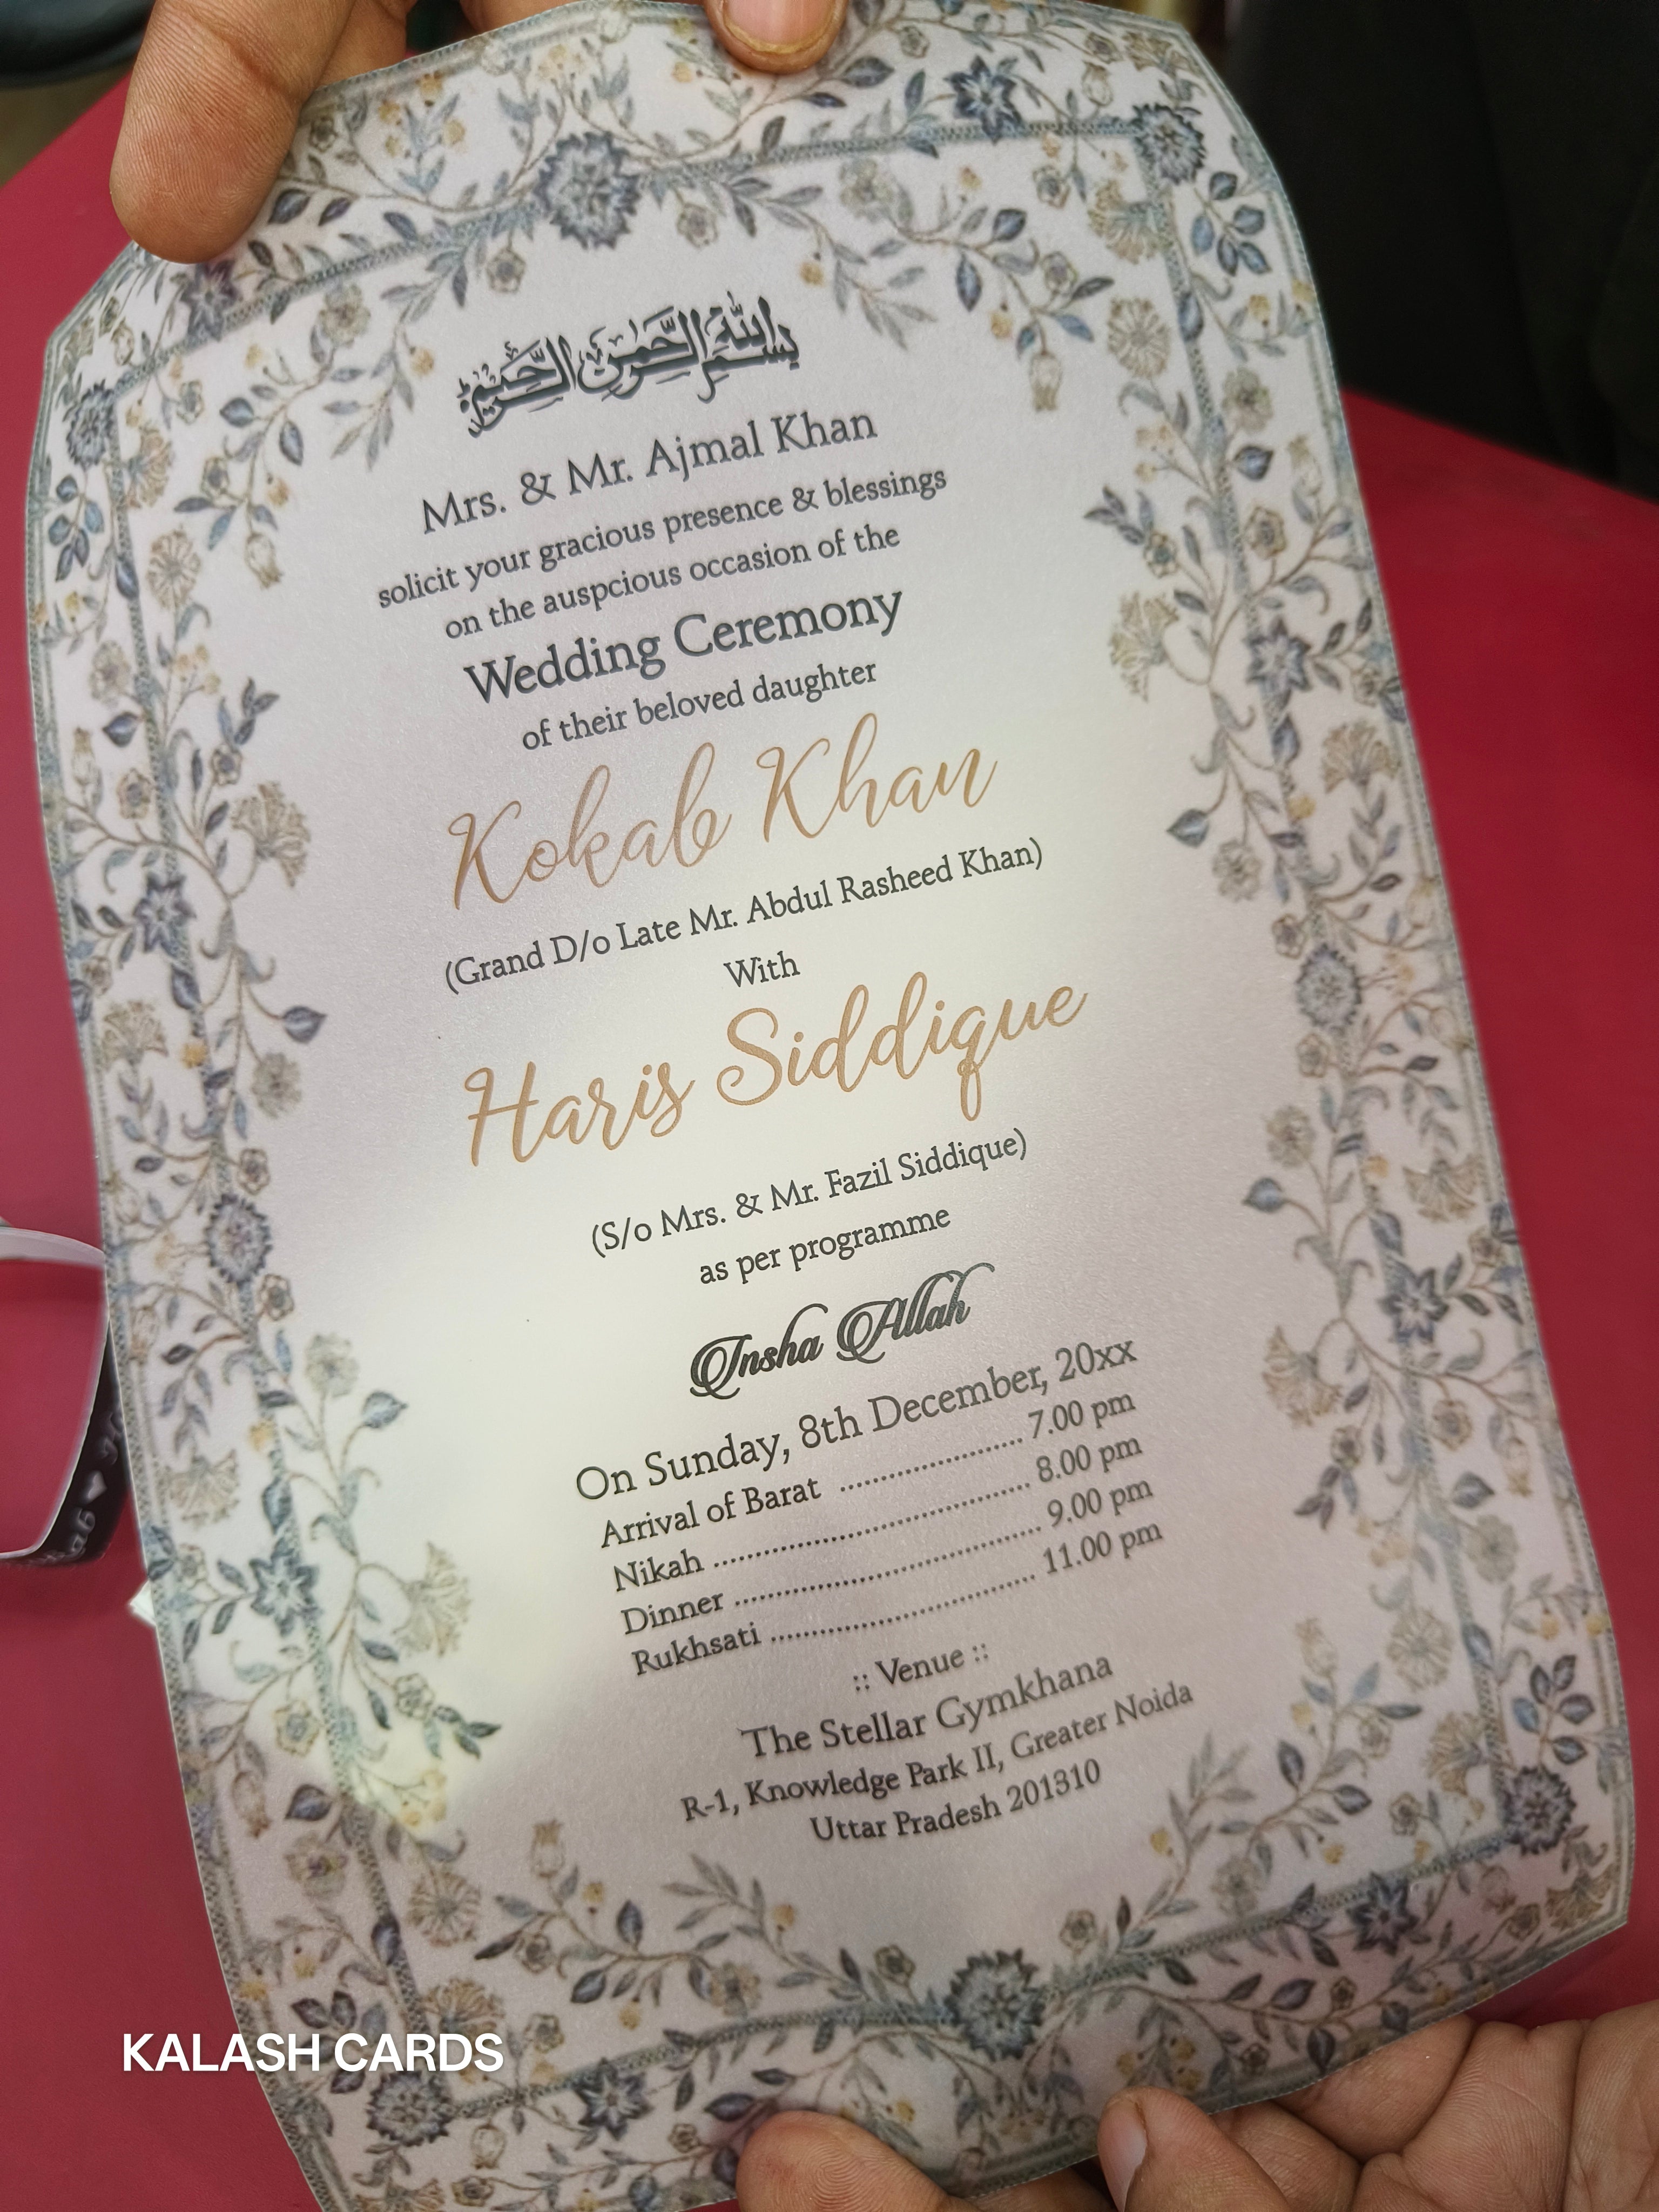 بسم الله الرحمن الرحيم
Mrs. & Mr. Ajmal Khan
solicit your gracious presence & blessings
on the auspcious occasion of the
Wedding Ceremony
of their beloved daughter
Kokab Khan
(Grand D/o Late Mr. Abdul Rasheed Khan)
With
Haris Siddique
(S/o Mrs. & Mr. Fazil Siddique)
as per programme
Insha Allah
On Sunday, 8th December, 20xx
Arrival of Barat ........................ 7.00 pm
Nikah .......................................... 8.00 pm
Dinner ........................................ 9.00 pm
Rukhsati ................................... 11.00 pm
:: Venue ::
The Stellar Gymkhana
R-1, Knowledge Park II, Greater Noida
Uttar Pradesh 201310
KALASH CARDS